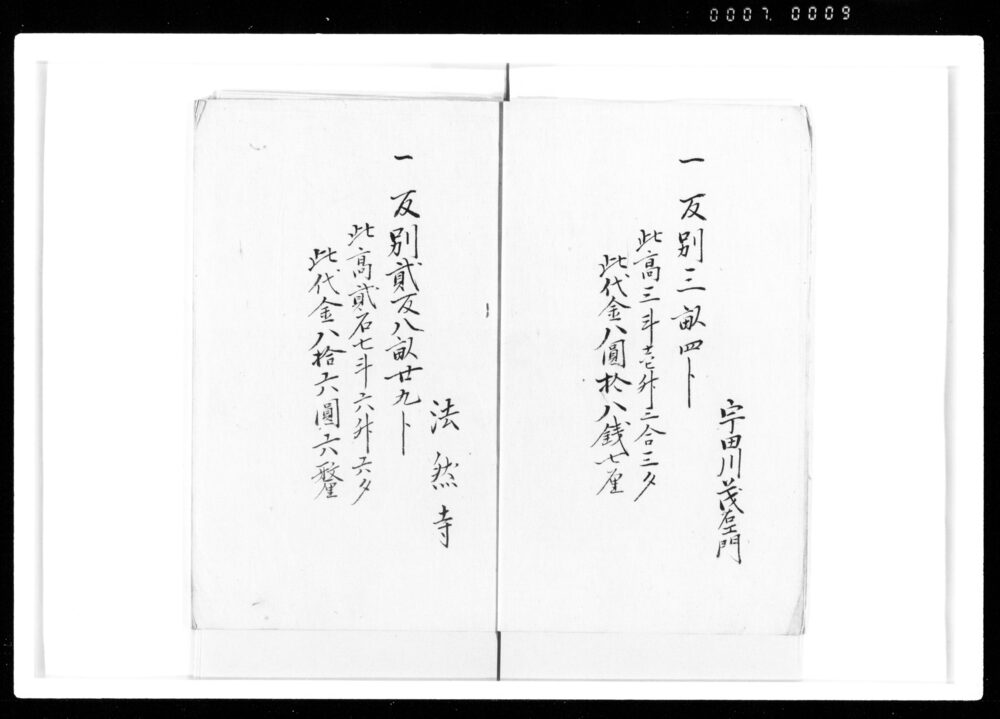 0007.0009
宇田川茂左エ門
一反別三畝四卜
此高三斗壱升三合三夕
此代金八圓拾八銭七厘
法然寺
一反別貳反八畝廿九卜
此高貳石七斗六升六夕
此代金八拾六圓六釐